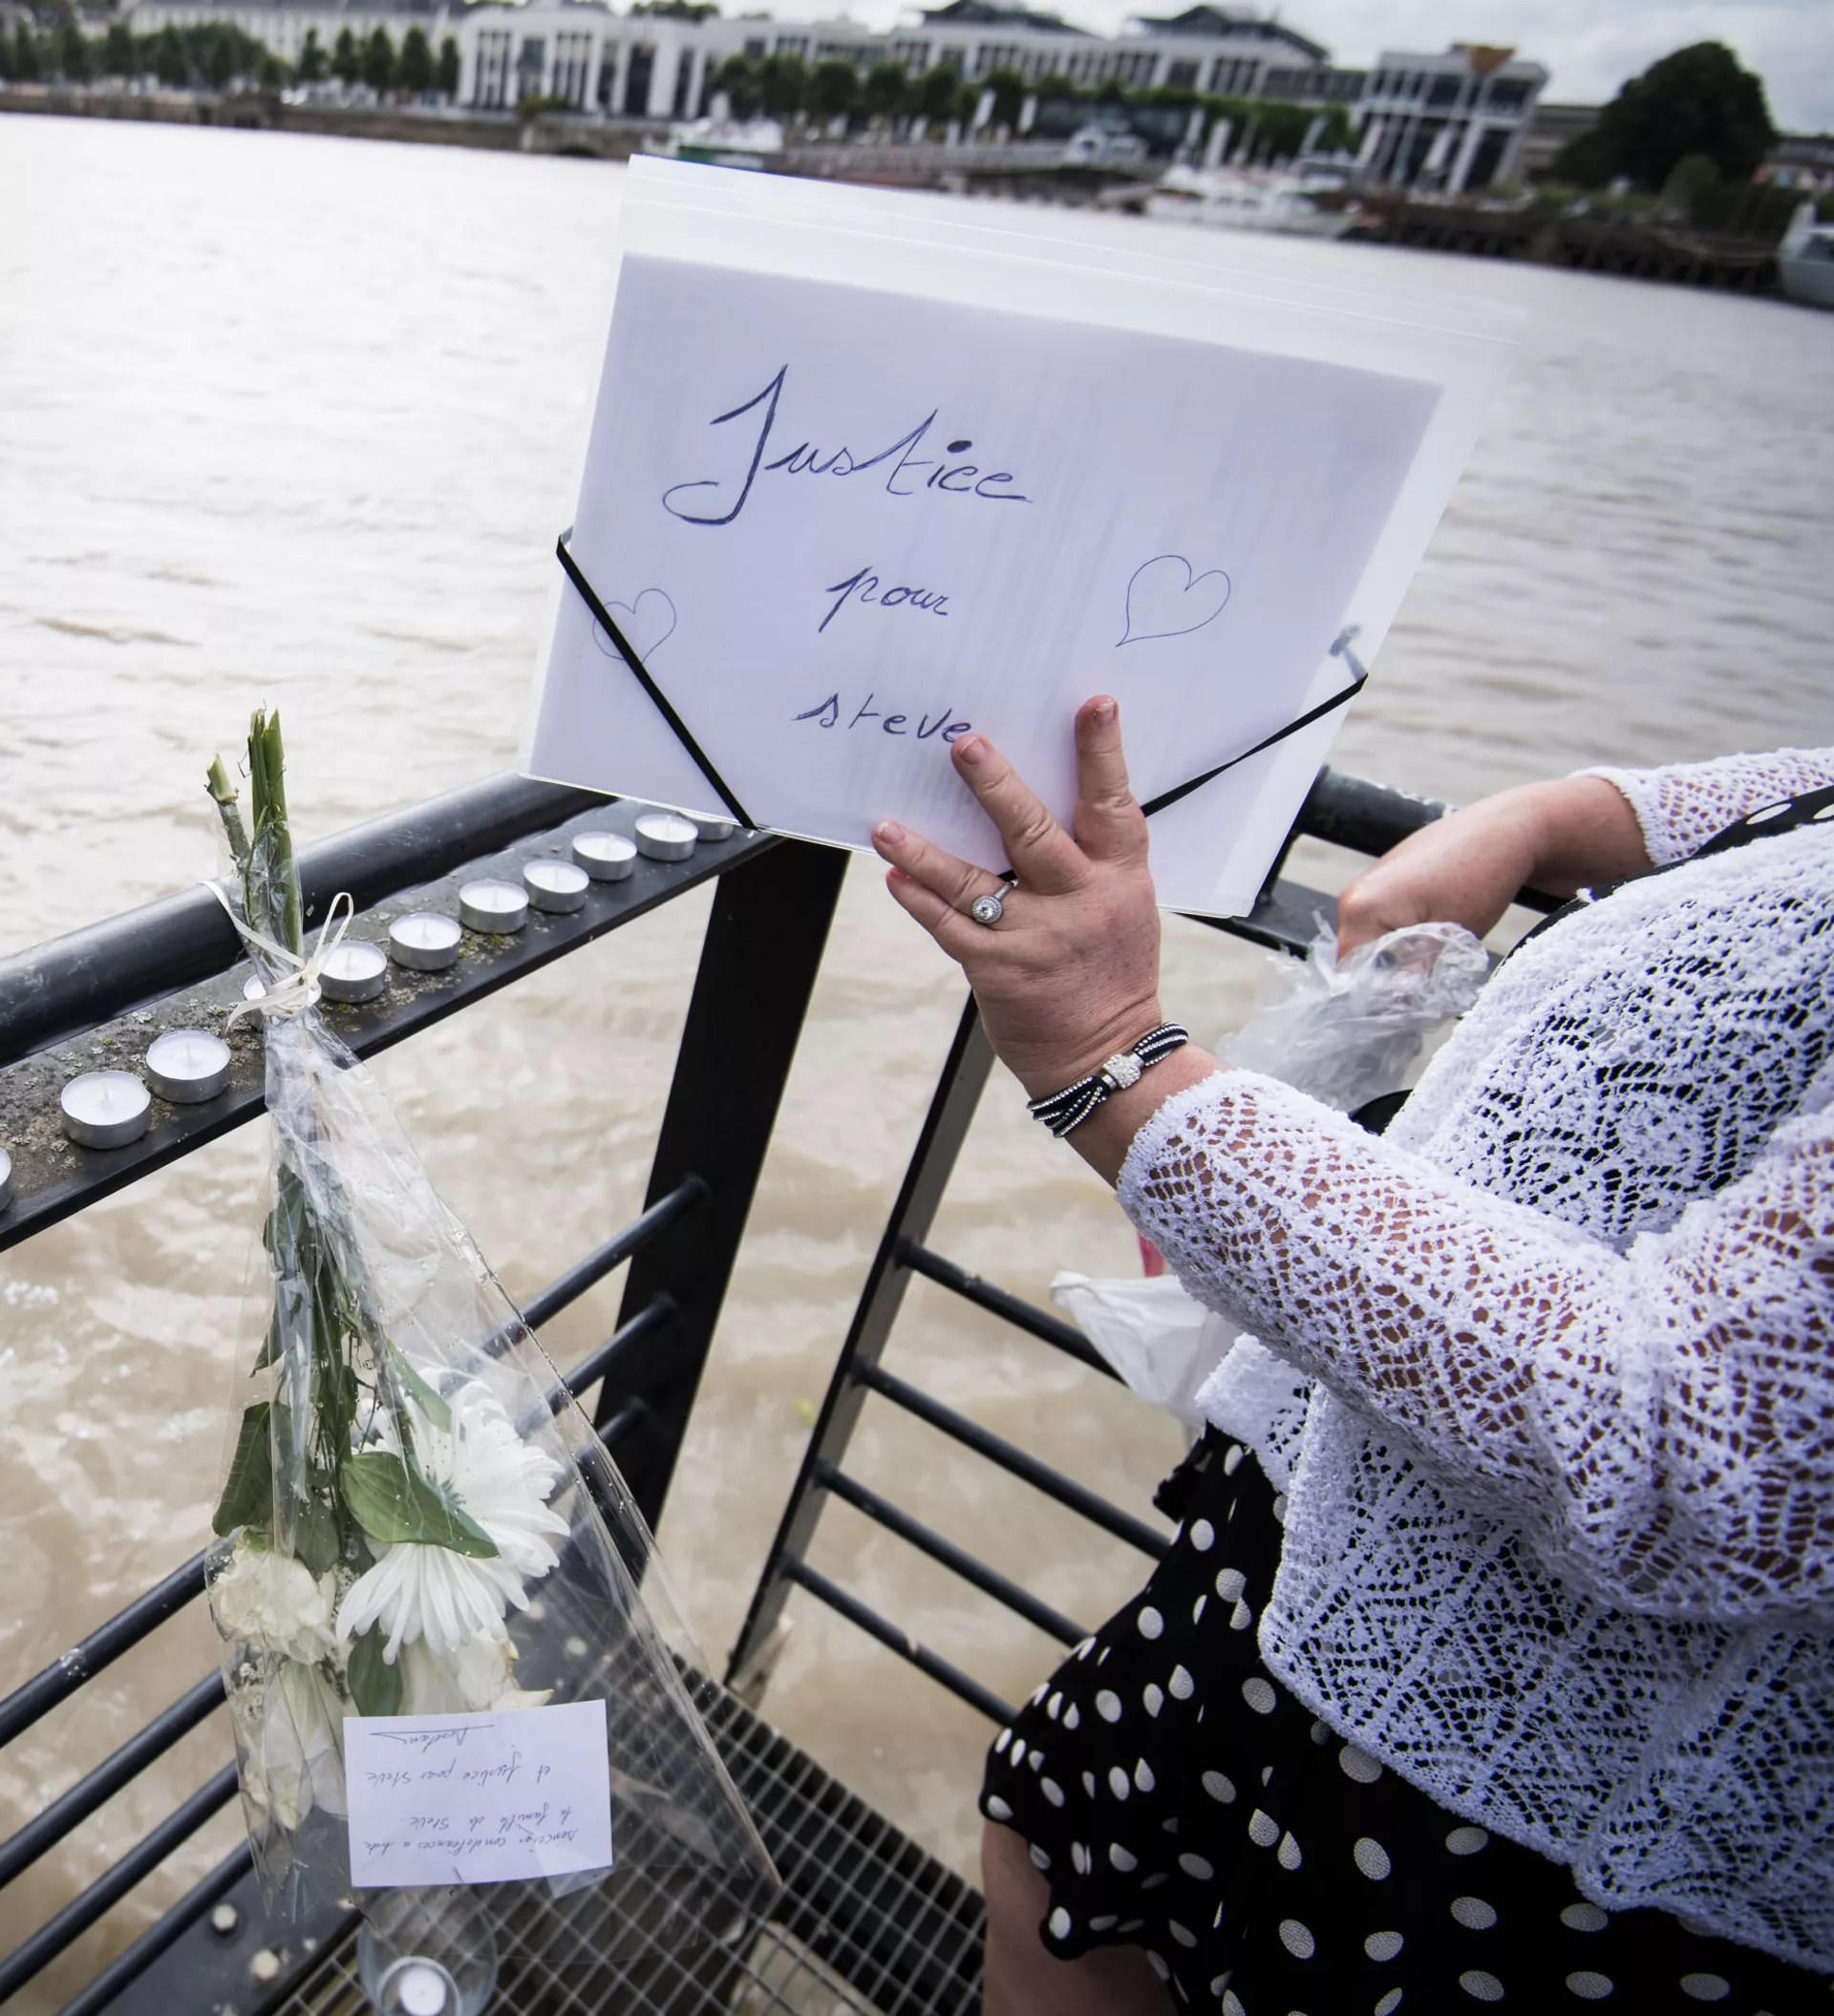 Justice
pour
steve
sincères condoléances a toute
la famille de Steve.
et justice pour Steve